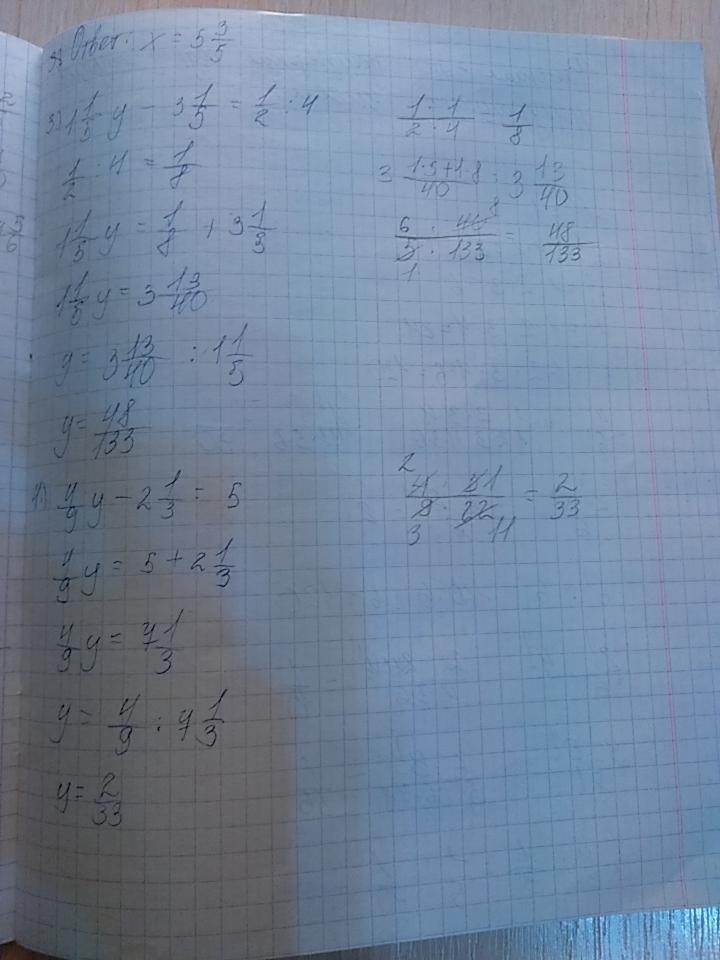 Ответ: x = 5 3/5
3) 1 1/5 y - 3 1/5 = 1/2 : 4
1/2 : 4 = 1/8
1 1/5 y = 1/8 + 3 1/5
1 1/5 y = 3 13/40
y = 3 13/40 : 1 1/5
y = 48/133
4/9 y - 2 1/3 = 5
4/9 y = 5 + 2 1/3
4/9 y = 7 1/3
y = 4/9 : 7 1/3
y = 2/33
1 · 1 / 2 · 4 = 1/8
3 1·5+1·8 / 40 = 3 13/40
6 · 40 8 / 5 1 · 133 = 48/133
2 4 · 3 1 / 9 3 · 22 11 = 2/33